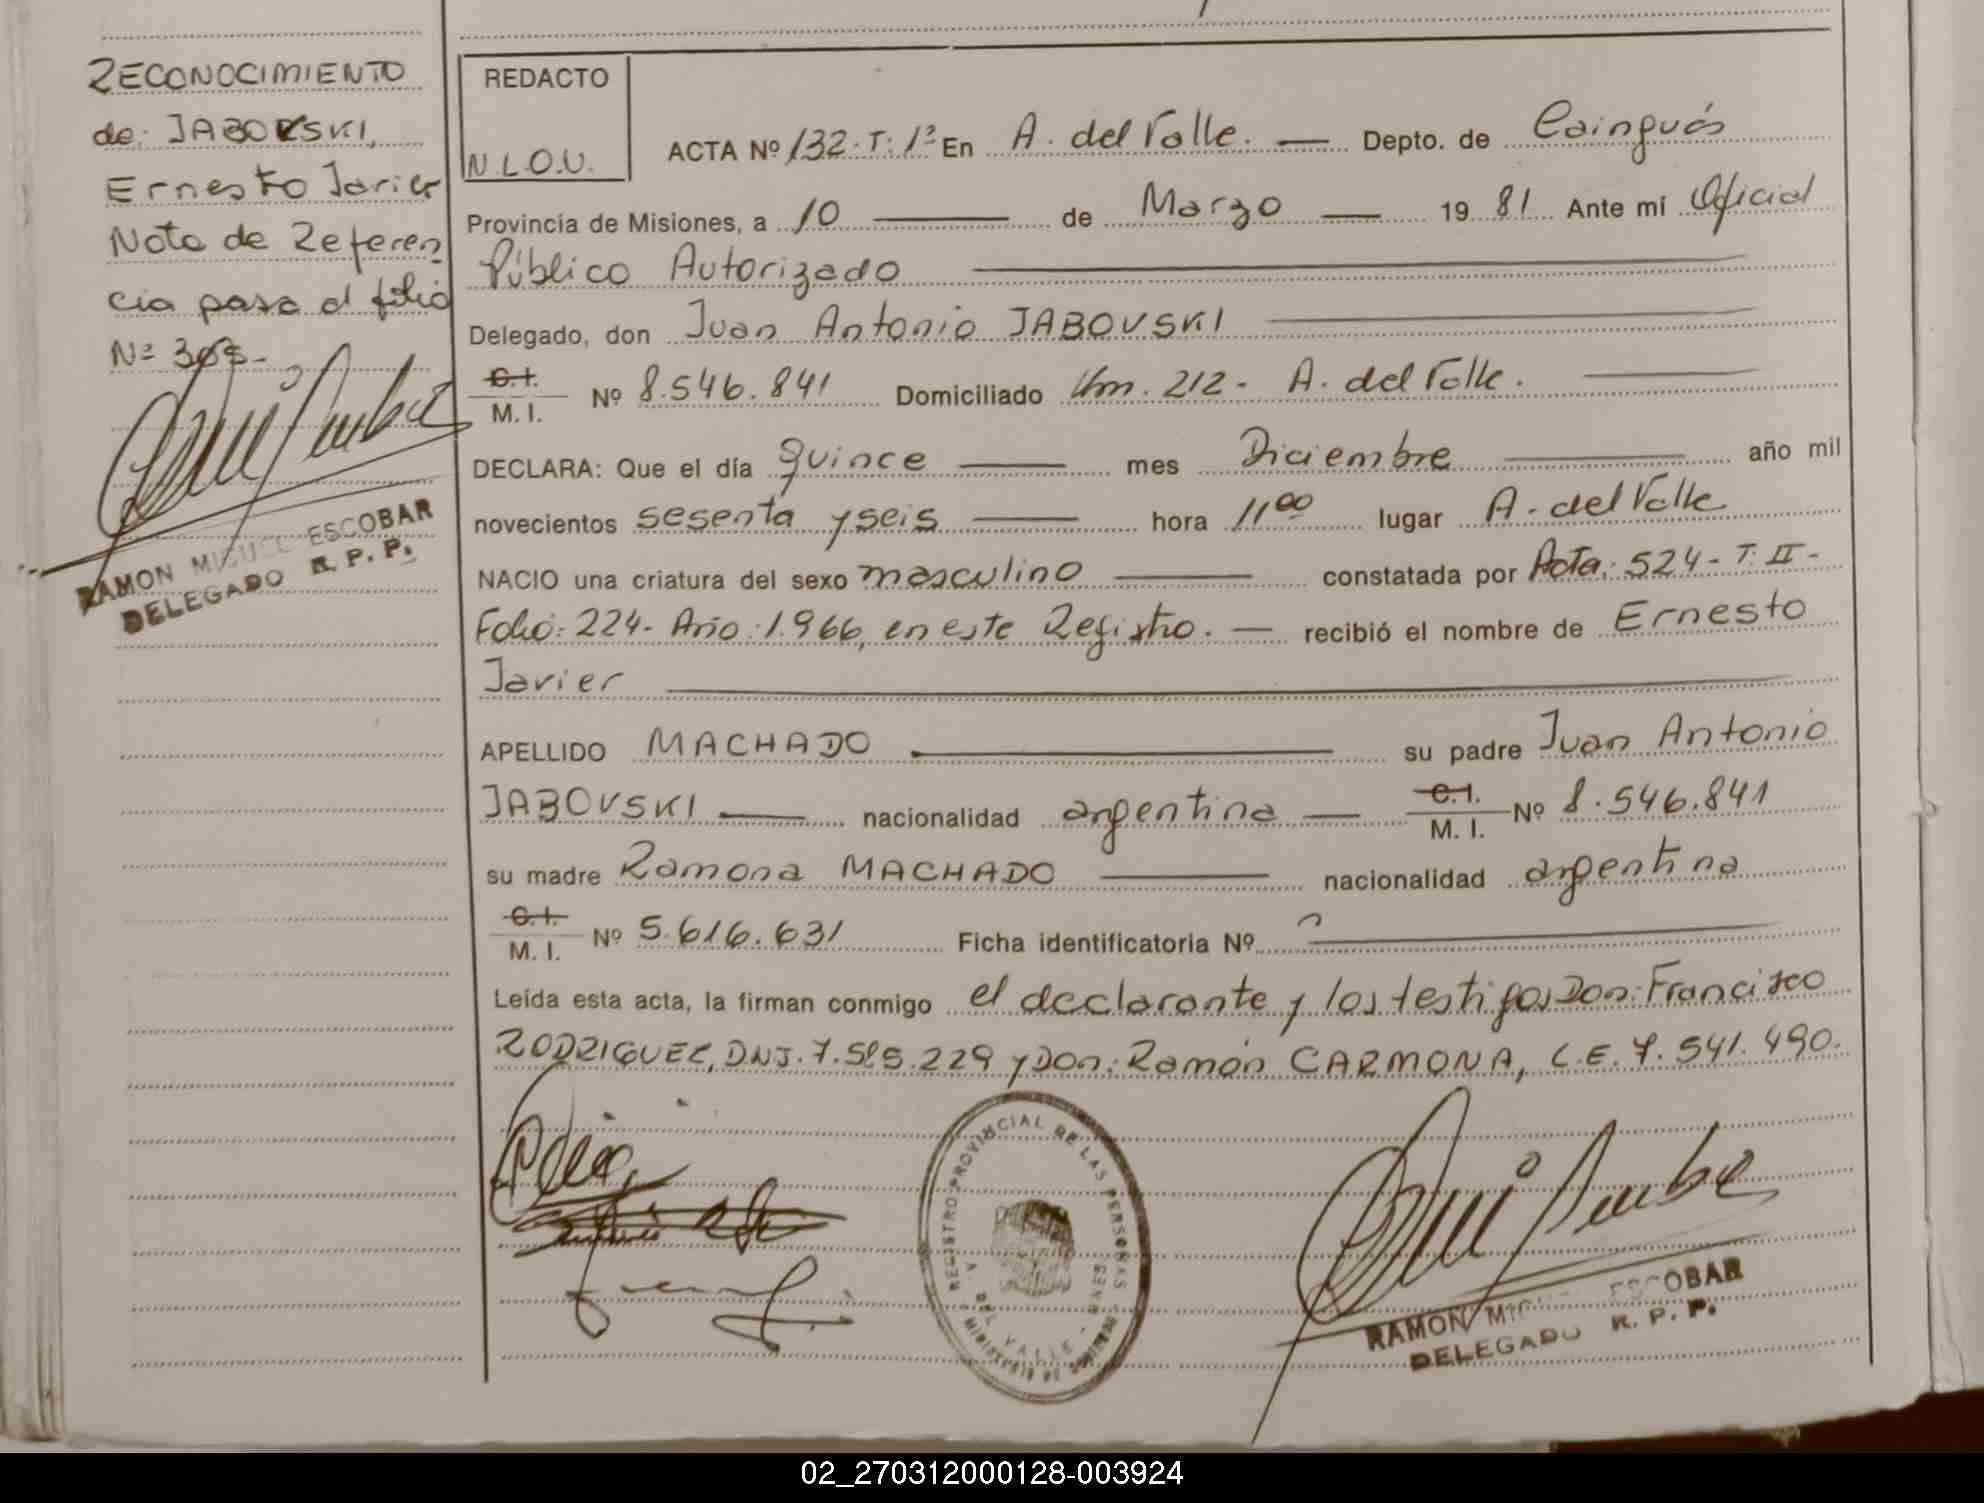 RECONOCIMIENTO
de: JABOVSKI,
Ernesto Javier
Nota de Referen
cia pasa al folio
Nº
RAMON MIGUEL ESCOBAR
DELEGADO R. P. P.
REDACTO
N.L.O.U.
ACTA Nº 132. T: 1º En A. del Valle. — Depto. de Cainguás
Provincia de Misiones, a 10 — de Marzo — 19 81 Ante mí Oficial
Público Autorizado
Delegado, don Juan Antonio JABOVSKI
C.I. M. I. Nº 8.546.841 Domiciliado Km. 212 - A. del Valle.
DECLARA: Que el día quince — mes Diciembre — año mil
novecientos sesenta y seis — hora 11 00 lugar A. del Valle
NACIO una criatura del sexo masculino — constatada por Acta: 524 - T. II -
Folio: 224 - Año: 1.966, en este Registro. — recibió el nombre de Ernesto
Javier
APELLIDO MACHADO — su padre Juan Antonio
JABOVSKI — nacionalidad argentina — C.I. M. I. Nº 8.546.841
su madre Ramona MACHADO — nacionalidad argentina
C.I. M. I. Nº 5.616.631 Ficha identificatoria Nº
Leída esta acta, la firman conmigo el declarante y los testigos Don: Francisco
RODRIGUEZ, DNI. y Don: Ramón CARMONA, L.E. 7.541.490.
REGISTRO PROVINCIAL DE LAS PERSONAS
A. DEL VALLE - MNES.
MINISTERIO DE GOBIERNO
RAMON MIGUEL ESCOBAR
DELEGADO R. P. P.
02_270312000128-003924